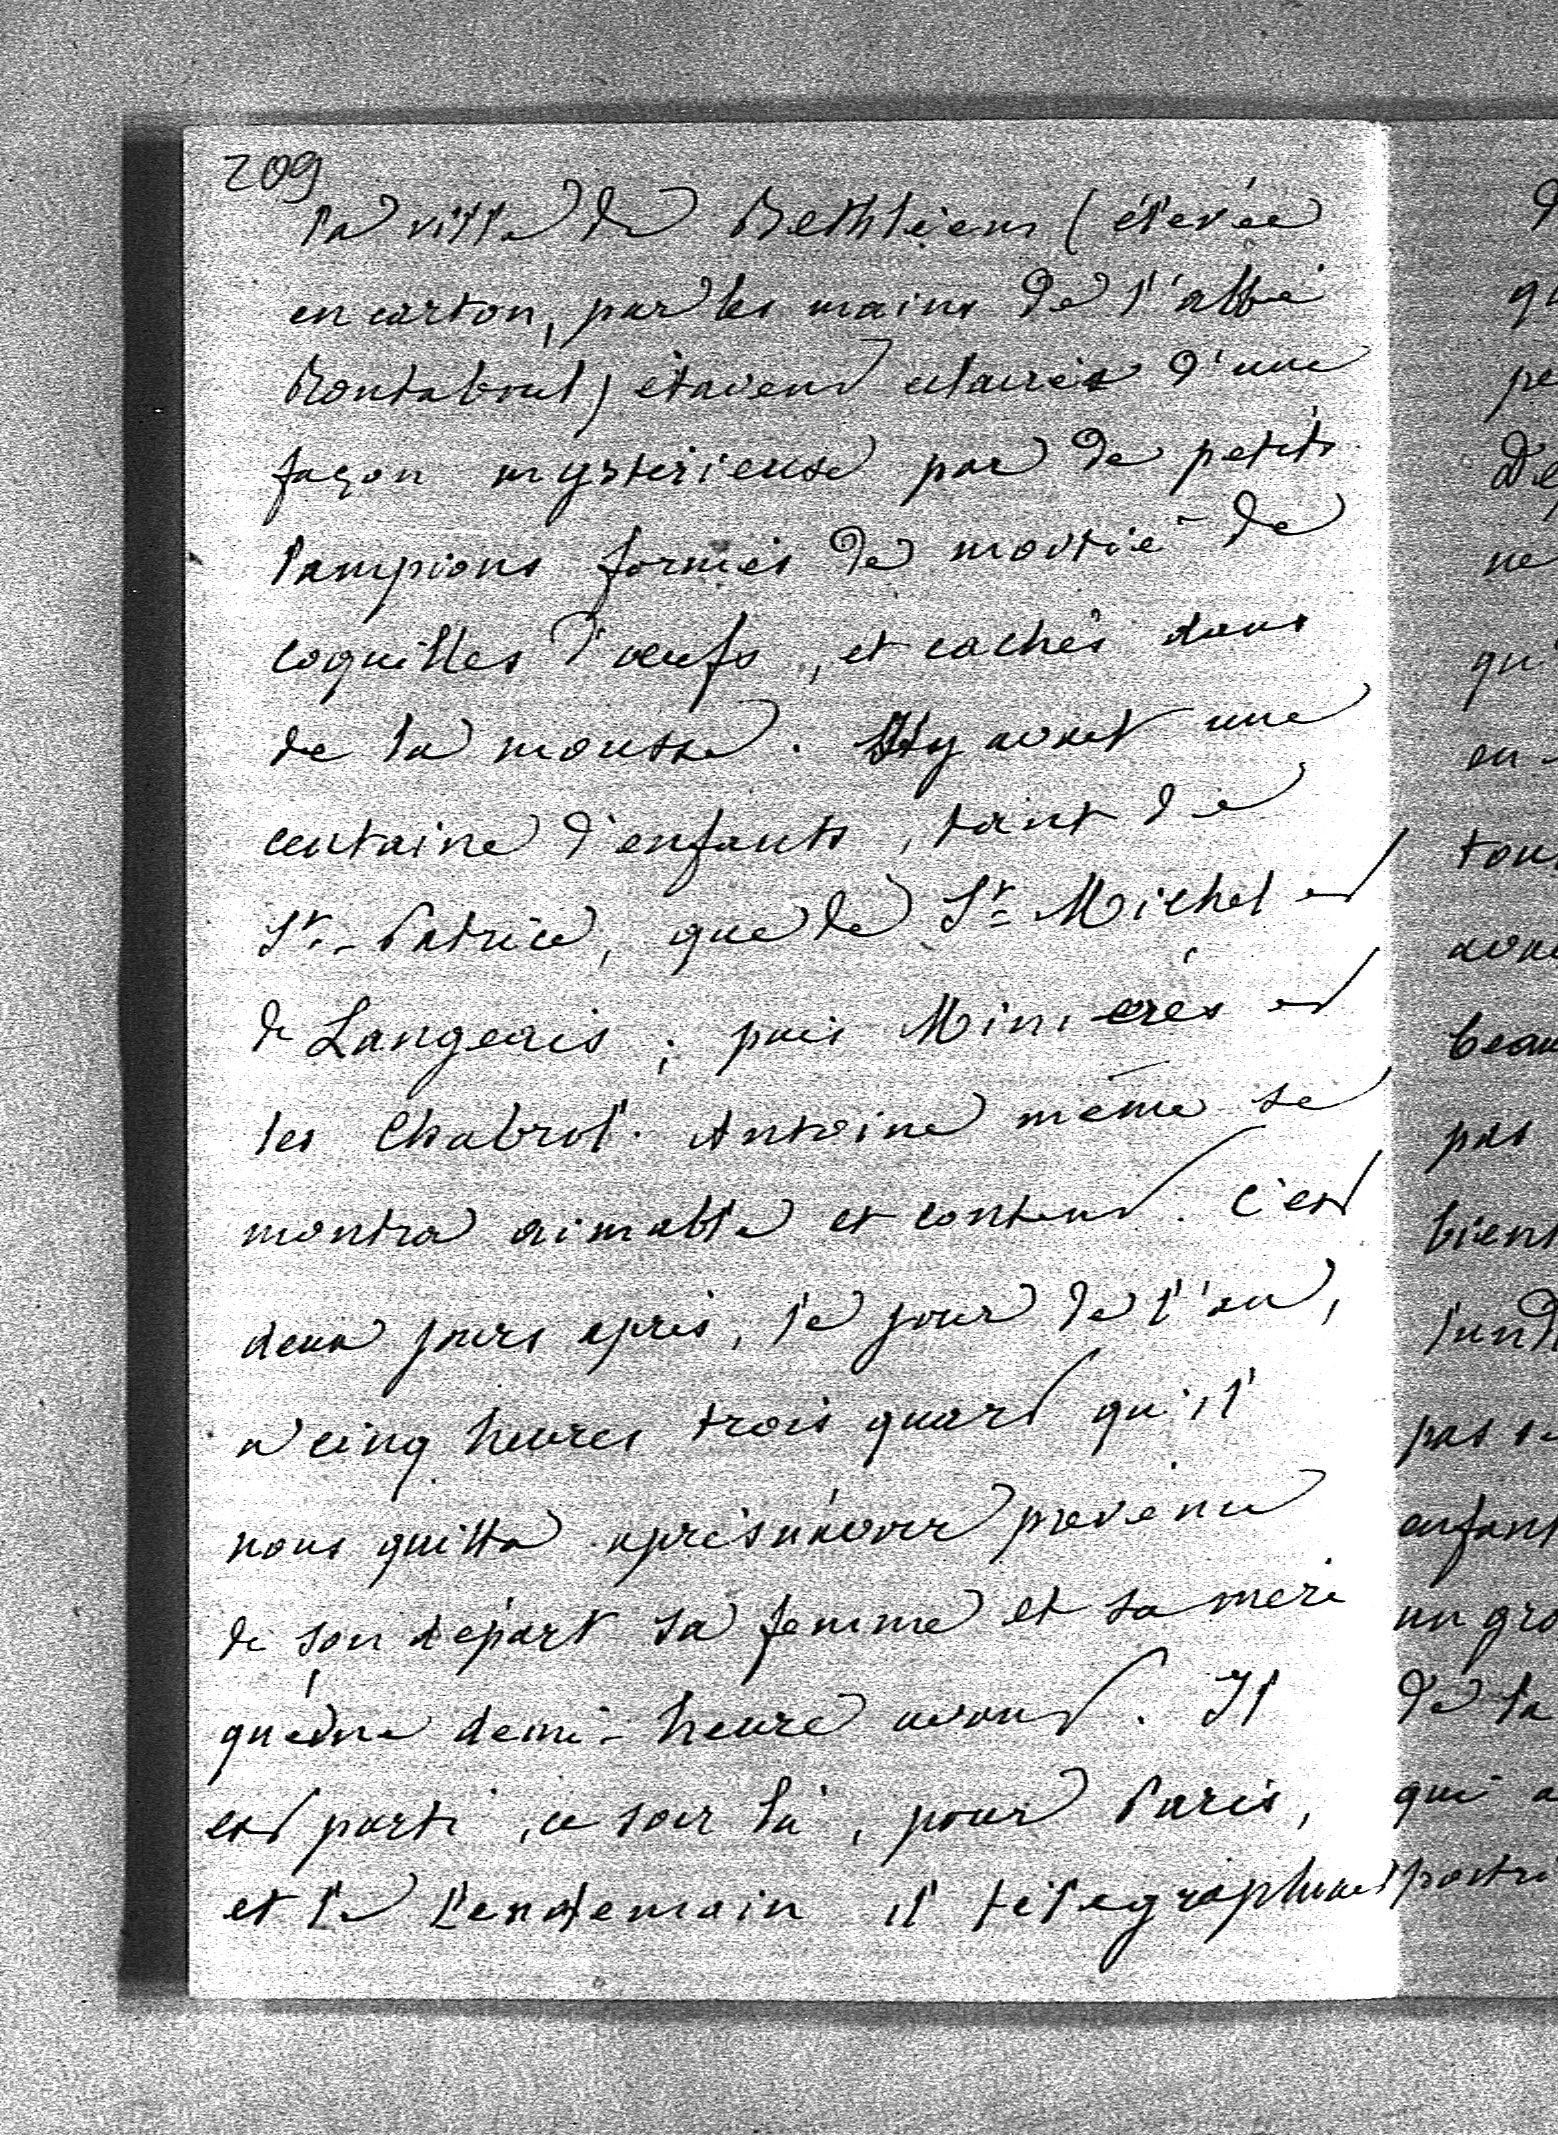 209
la ville de Bethléem (élevée
en carton, par les mains de l'abbé
Montabrut) étaient éclairés d'une
façon mystérieuse par de petits
lampions formés de moitié de
coquilles d'œufs, et cachés dans
de la mousse. Il y avait une
centaine d'enfants, tant de
St.-Patrice, que de St-Michel et
de Langeais ; puis Minierés et
les Chabrol. Antoine même se
montra aimable et content. C'est
deux jours après, le jour de l'an,
à cinq heures trois quart qu'il
nous quitta après n'avoir prévenu
de son départ sa femme et sa mère
qu'une demi-heure avant. Il
est parti, ce soir là, pour Paris,
et le lendemain il télégraphiait